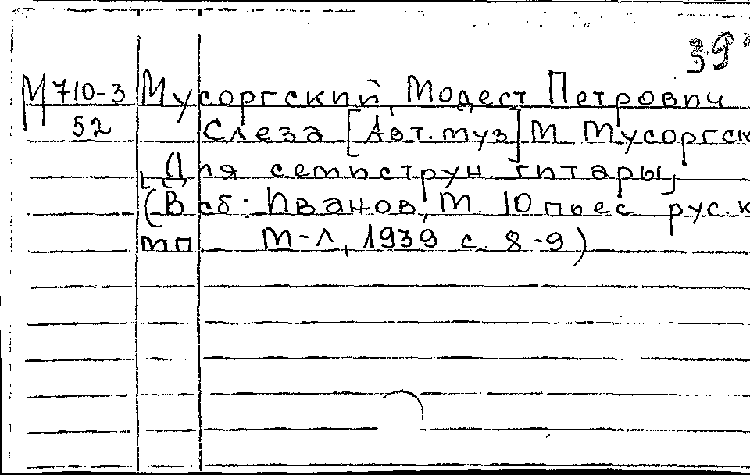 39
М 710-3 Мусоргский, Модест Петрович
52 Слеза [Авт. муз.] М Мусоргск
[Для семиструн гитары]
(В сб: Иванов, М 10 пьес рус. к
мп М-Л, 1939 с. 8-9)